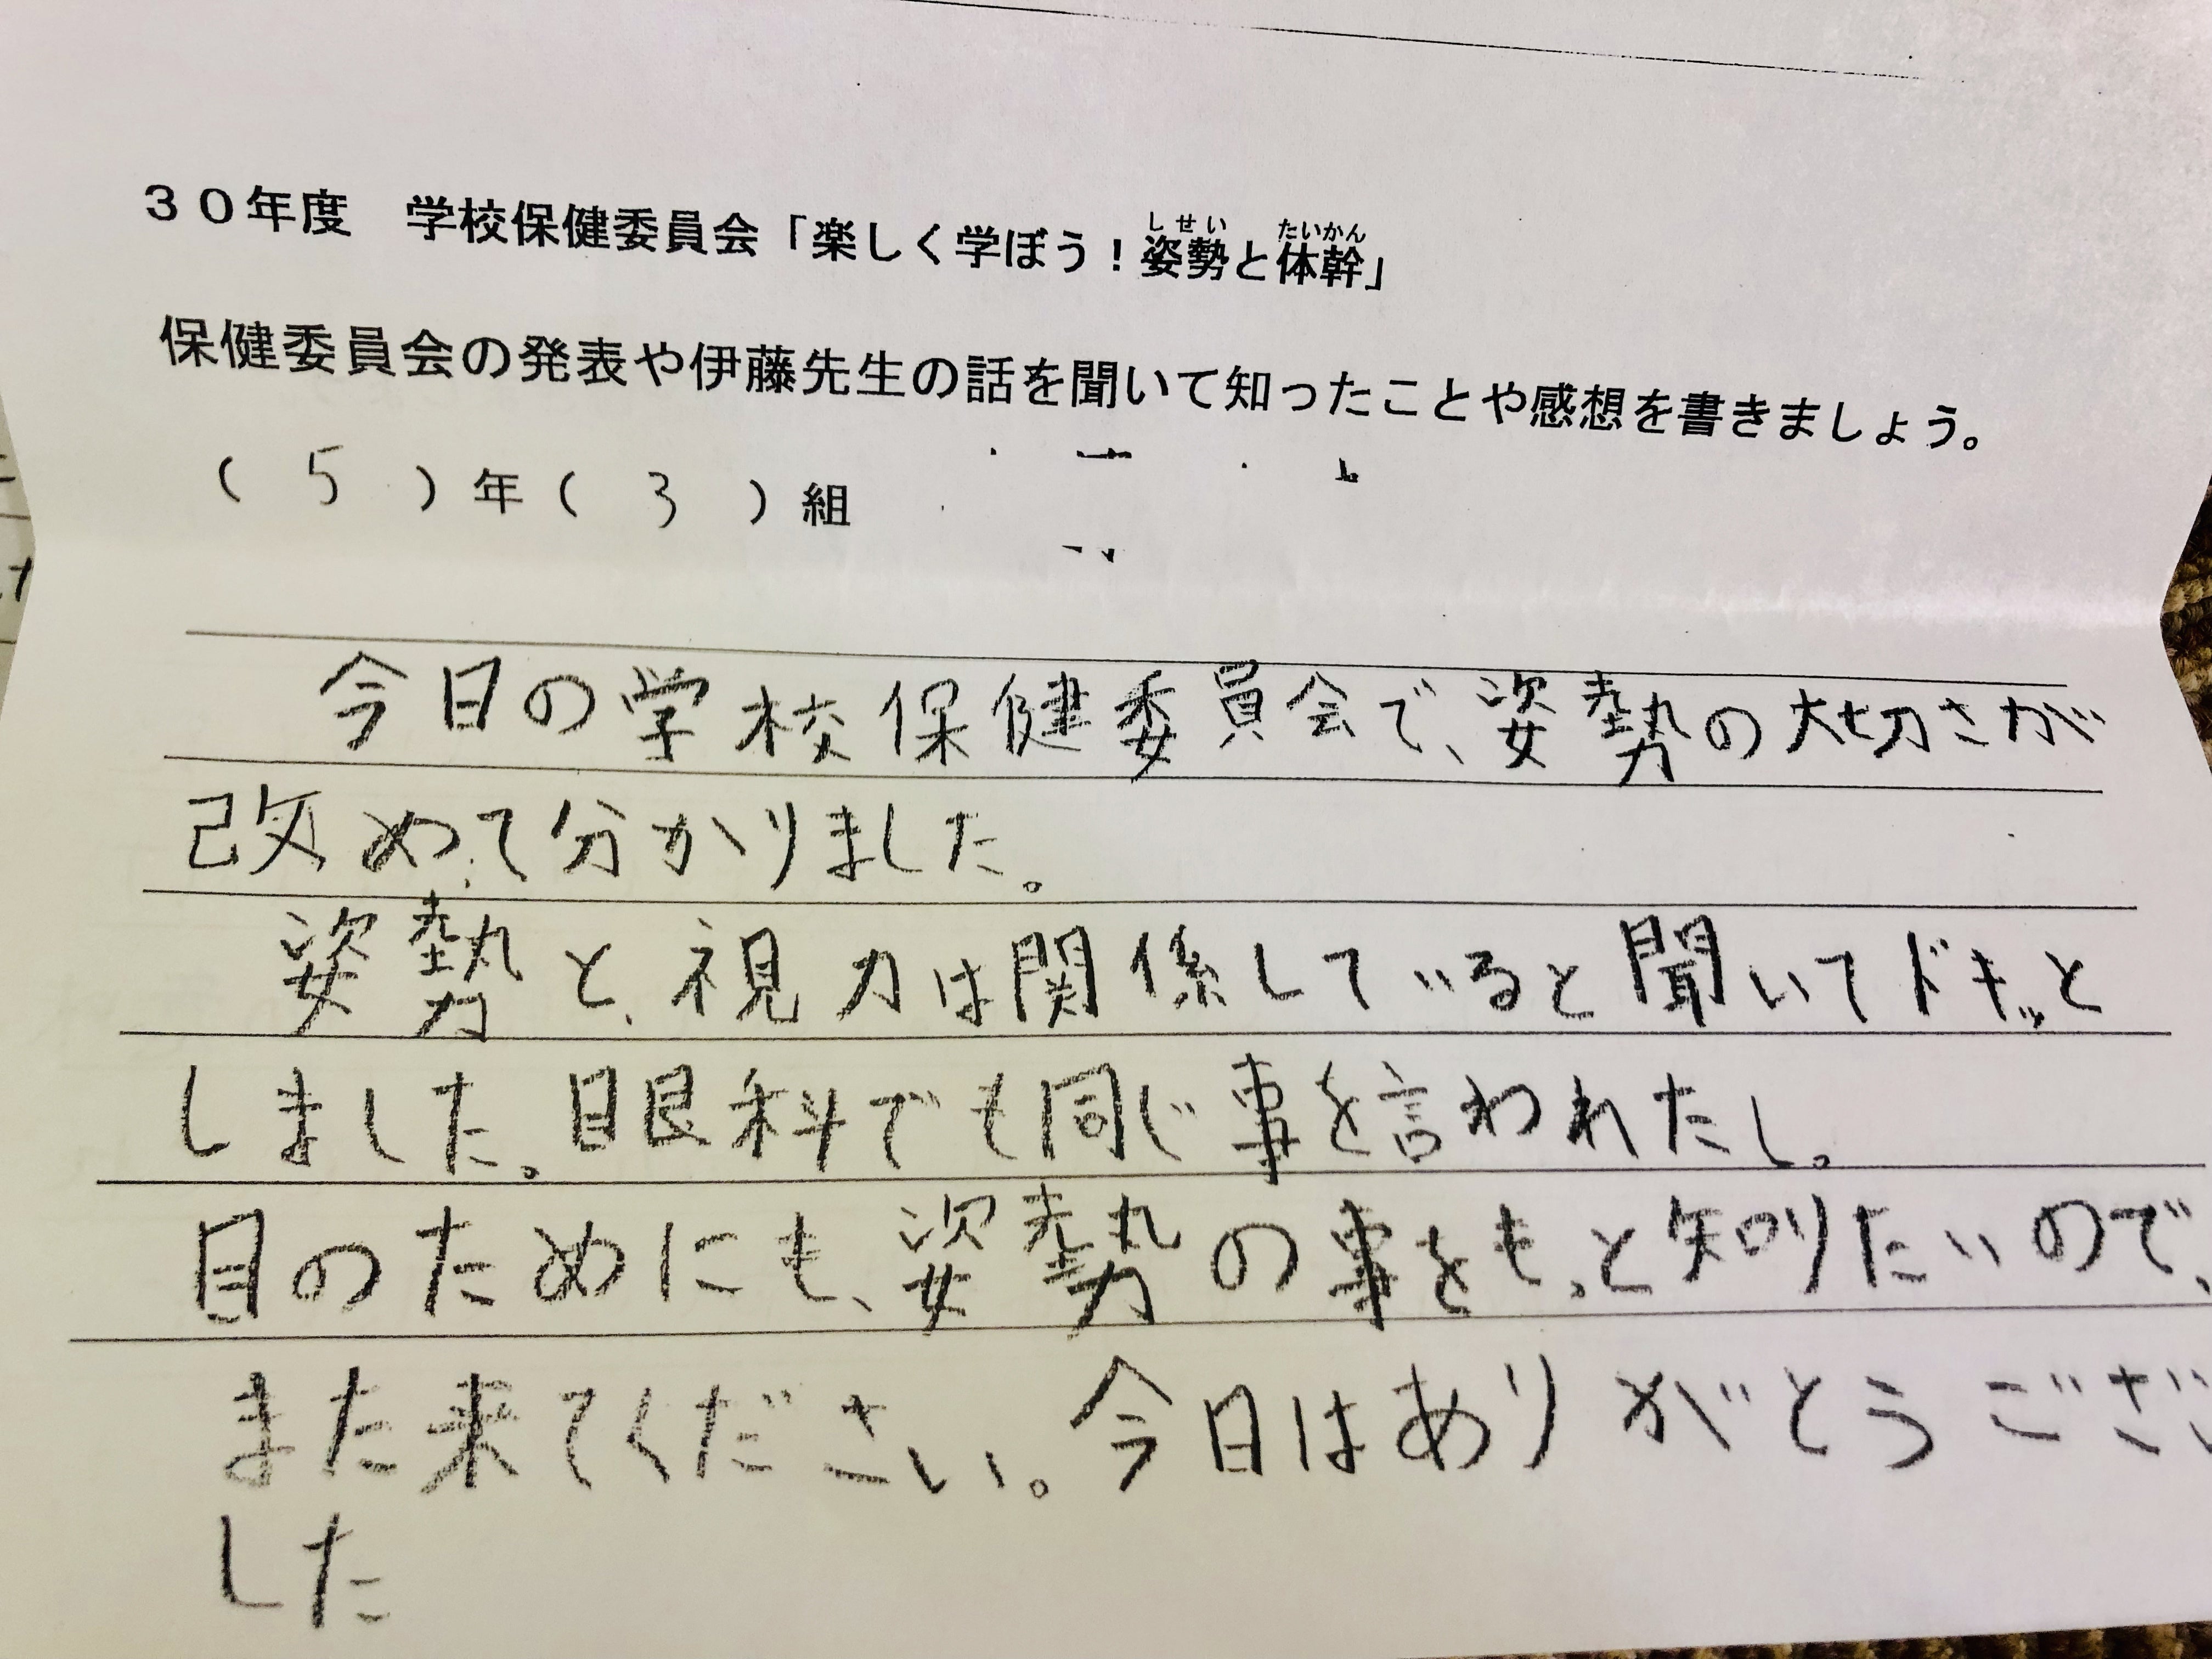 30年度　学校保健委員会「楽しく学ぼう！姿勢と体幹」
しせい　たいかん
保健委員会の発表や伊藤先生の話を聞いて知ったことや感想を書きましょう。
（　5　）年（　3　）組
今日の学校保健委員会で、姿勢の大切さが
改めて分かりました。
姿勢と、視力は関係していると聞いてドキッと
しました。眼科でも同じ事を言われたし。
目のためにも、姿勢の事をもっと知りたいので、
また来てください。今日はありがとうござい
した